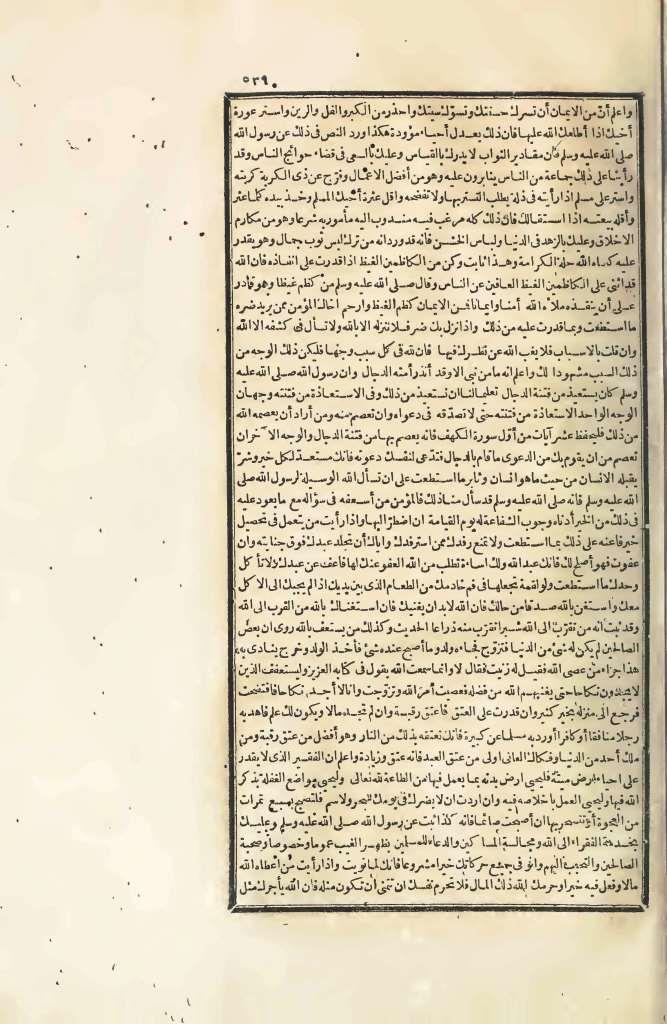 ٥٣٩
واعلم أن من الايمان أن تسرك حسنتك وتسوءك سيئتك واحذر من الكبر والغل والرين واستر عورة
أخيك اذا أطلعك الله عليها فان ذلك يعدل أحياء مؤودة هكذا ورد النص فى ذلك عن رسول الله
صلى الله عليه وسلم فان مقادير الثواب لا يدرك بالقياس وعليك بالسعى فى قضاء حوائج الناس وقد
رأيت على ذلك جماعة من الناس يثابرون عليه وهو من أفضل الاعمال وفرج عن ذى الكربة كربته
واستر على مسلم اذا رأيته فى زلة يطلب التستر بها ولا تفضحه وأقل عثرة أخيك المسلم وخذ بيده كلما عثر
وأقله بيعته اذا استقالك فان ذلك كله مرغب فيه مندوب اليه مأمور به شرعا وهو من مكارم
الاخلاق وعليك بالزهد فى الدنيا ولباس الخشن فانه قد ورد انه من ترك لبس ثوب جمال وهو يقدر
عليه كساه الله حلة الكرامة وهذا ثابت وكن من الكاظمين الغيظ اذا قدرت على انفاذه فان الله
قد أثنى على الكاظمين الغيظ العافين عن الناس وقال صلى الله عليه وسلم من كظم غيظا وهو قادر
على أن ينفذه ملأه الله أمنا وايمانا فمن الايمان كظم الغيظ وارحم أخاك المؤمن ممن يريد ضره
ما استطعت وبما قدرت عليه من ذلك واذا نزل بك ضر فلا تنزله الا بالله ولا تسأل فى كشفه الا الله
وان قلت بالاسباب فلا يغب الله عن نظرك فيها فان لله فى كل سبب وجها فليكن ذلك الوجه من
ذلك السبب مشهودا لك واعلم انه ما من نبى الا وقد أنذر أمته الدجال وان رسول الله صلى الله عليه
وسلم كان يستعيذ من فتنة الدجال تعليما لنا ان نستعيذ من ذلك وفى الاستعاذة من فتنته وجهان
الوجه الواحد الاستعاذة من فتنته حتى لا تصدقه فى دعواه وان تعصم منه ومن أراد أن يعصمه الله
من ذلك فليحفظ عشر آيات من أول سورة الكهف فانه يعصم بها من فتنة الدجال والوجه الآخر ان
تعصم من ان يقوم بك من الدعوى ما قام بالدجال فتدعى لنفسك دعوته فانك مستعد لكل خير وشر
يقبله الانسان من حيث ما هو انسان وثابر ما استطعت على ان تسأل الله الوسيلة لرسول الله صلى
الله عليه وسلم فانه صلى الله عليه وسلم قد سأل منا ذلك فالمؤمن من أسعفه فى سؤاله مع ما يعود عليه
فى ذلك من الخير أدناه وجوب الشفاعة له يوم القيامة ان اضطر اليها واذا رأيت من يتعمل فى تحصيل
خير فأعنه على ذلك بما استطعت ولا تمنع رفدك ممن استرفدك واياك أن تجلد عبدك فوق جنايته وان
عفوت فهو أصلح لك فانك عبد الله ولك اساءة تطلب من الله العفو عنك لها فاعف عن عبدك ولا تأكل
وحدك ما استطعت ولو لقمة تجعلها فى فم خادمك من الطعام الذى بين يديك اذا لم يجبك الى الاكل
معك واستغن بالله صدقا من حالك فان الله لا بد ان يغنيك فان استغناك بالله من القرب الى الله
وقد ثبت انه من تقرب الى الله شبرا تقرب منه ذراعا الحديث وكذلك من يستعف بالله روى ان بعض
الصالحين لم يكن له شئ من الدنيا فتزوج فجاءه ولد وما أصبح عنده شئ فأخذ الولد وخرج ينادى به
هذا جزاء من عصى الله فقيل له زنيت فقال لا وانما سمعت الله يقول فى كتابه العزيز وليستعفف الذين
لا يجدون نكاحا حتى يغنيهم الله من فضله فعصيت أمر الله وتزوجت وأنا لا أجد نكاحا فافتضحت
فرجع الى منزله بخير كثير وان قدرت على العتق فاعتق رقبة وان لم تجد مالا ويكون لك علم فاهد به
رجلا منافقا أو كافرا أو رد به مسلما عن كبيرة فانك تعتقه بذلك من النار وهو أفضل من عتق رقبة ومن
ملك أحد من الدنيا وفكاك العانى أولى من عتق العبد فانه عتق وزيادة واعلم ان الفقير الذى لا يقدر
على احياء أرض ميتة فليحيى ارض بدنه بما يعمل فيها من الطاعة لله تعالى وليحيى مواضع الغفلة بذكر
الله فيها وليحيى العمل باخلاصه فيه وان اردت ان لا يضرك فى يومك سحر ولا سم فلتصبح بسبع تمرات
من العجوة أو تتسحر بها ان أصبحت صائما فانه كذا ثبت عن رسول الله صلى الله عليه وسلم وعليك
بخدمة الفقراء الى الله ومجالسة المساكين والدعاء للمسلمين بظهر الغيب عموما وخصوصا وصحبة
الصالحين والتحبب اليهم وانو فى جميع حركاتك خيرا مشروعا فانك لما نويت واذا رأيت من أعطاه الله
مالا وفعل فيه خيرا وحرمك الله ذلك المال فلا تحرم نفسك ان تتمنى أن تكون مثله فان الله يأجرك مثل